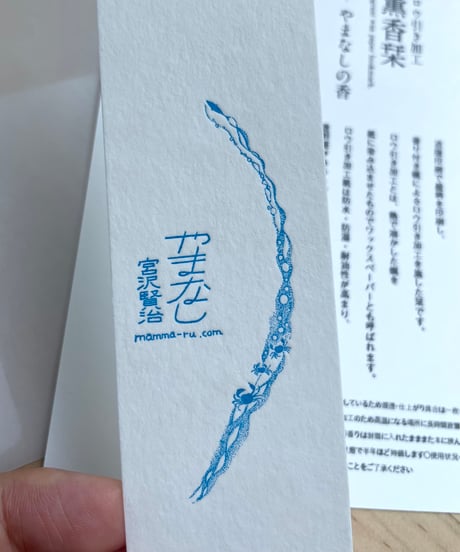 やまなし
宮沢賢治
mamma-ru.com
ロウ引き加工
薫香栞
やまなしの香
活版印刷で龍柄を印刷し、
香り付き蠟によるロウ引き加工を施した栞です。
ロウ引き加工とは、熱で溶かした蠟を
紙に染み込ませたものでワックスペーパーとも呼ばれます。
ロウ引き加工紙は防水・防湿・耐油性が高まり、
しているため浸透・仕上がり具合は一枚
工のため高温になる場所に長時間放置
香りは封筒に入れたまままた本に挟ん
態で半年ほど持続します○使用状況
ことをご了承ください